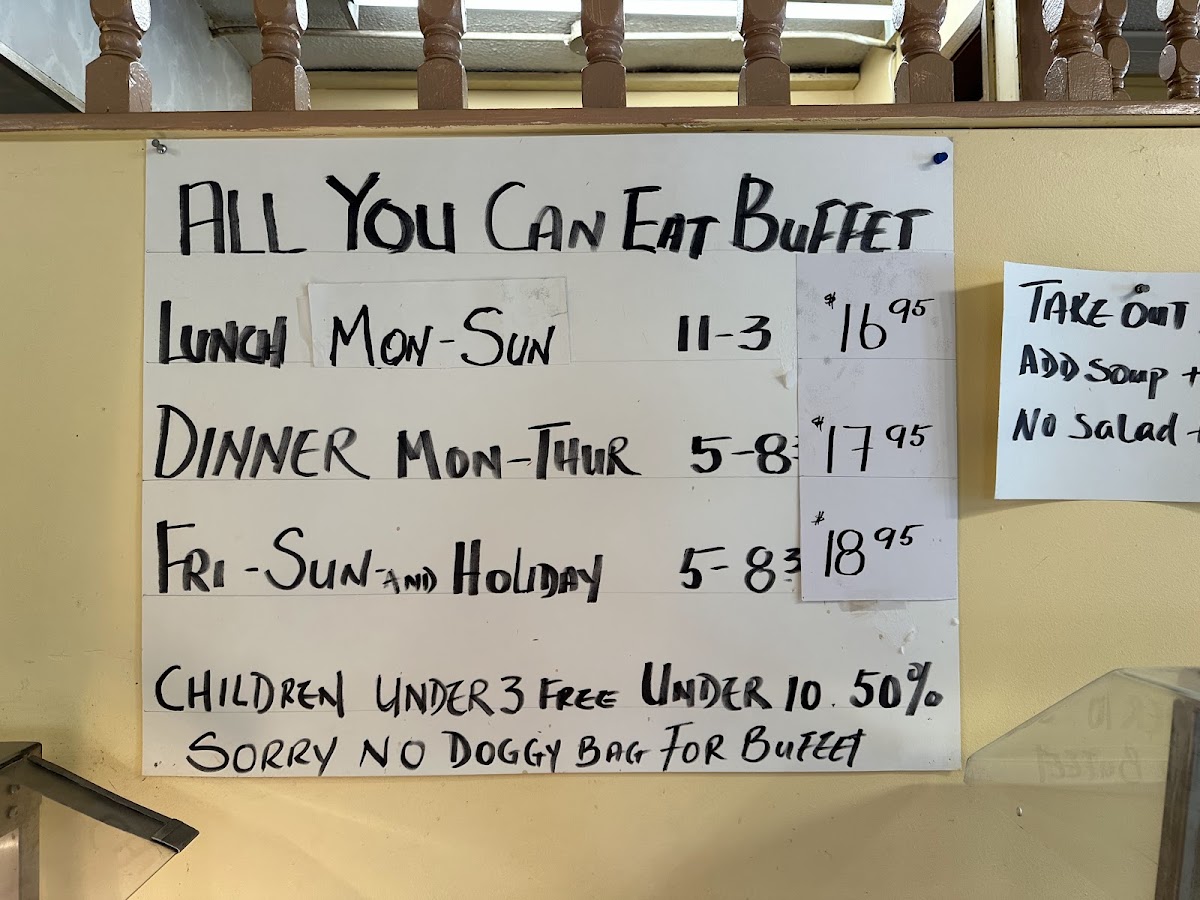 ALL YOU CAN EAT BUFFET
LUNCH MON-SUN 11-3 $16.95
DINNER MON-THUR 5-8: $17.95
FRI-SUN-AND HOLIDAY 5-8:3 $18.95
CHILDREN UNDER 3 FREE UNDER 10. 50%
SORRY NO DOGGY BAG FOR BUFFET
TAKE OUT
ADD SOUP +
NO SALAD -